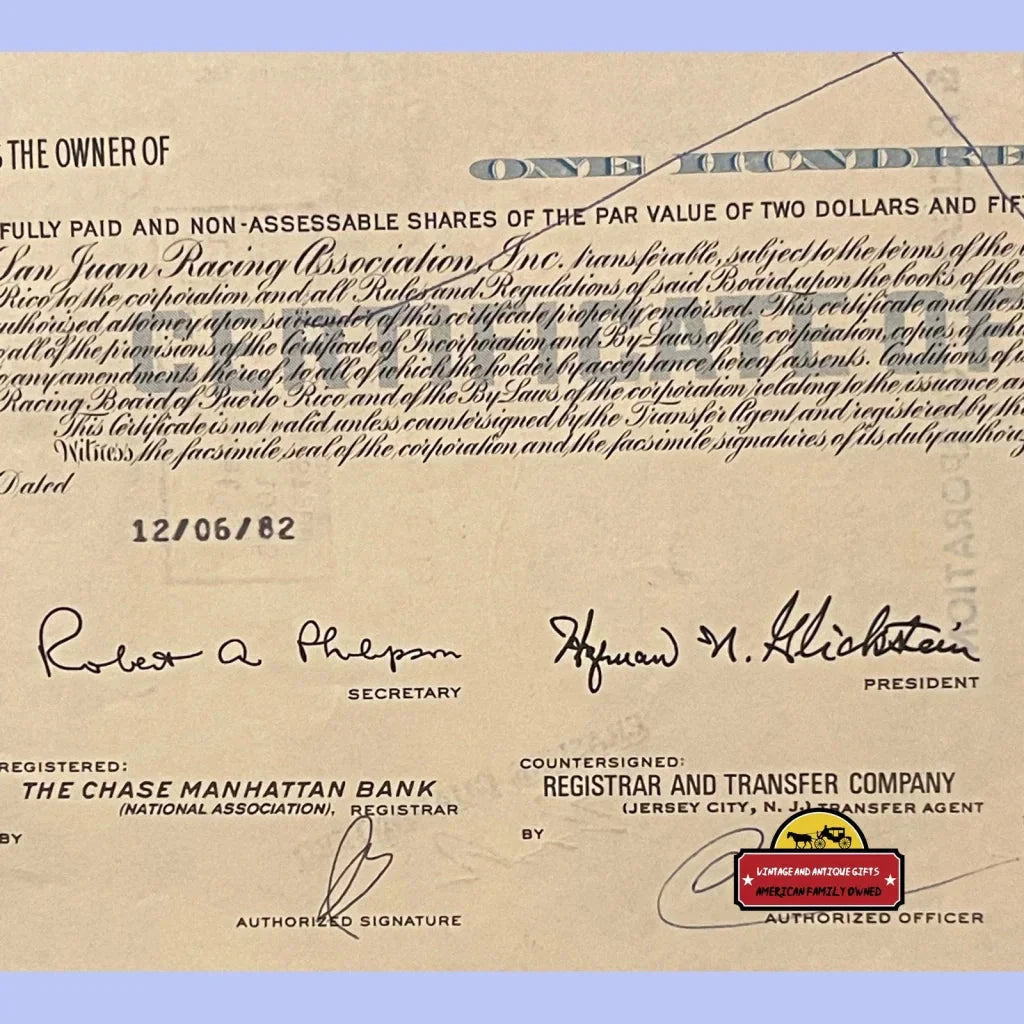 THE OWNER OF
ONE HUNDRE
FULLY PAID AND NON-ASSESSABLE SHARES OF THE PAR VALUE OF TWO DOLLARS AND FIFT
San Juan Racing Association, Inc. transferable, subject to the terms of the
Rico to the corporation, and all Rules and Regulations of said Board, upon the books of the
authorized attorney upon surrender of this certificate properly endorsed. This certificate and the s
all of the provisions of the Certificate of Incorporation and By Laws of the corporation, copies of whi
any amendments thereof, to all of which the holder by acceptance hereof assents. Conditions of
Racing Board of Puerto Rico and of the By Laws of the corporation relating to the issuance an
This Certificate is not valid unless countersigned by the Transfer Agent and registered by the
Witness, the facsimile seal of the corporation and the facsimile signatures of its duly authoriz
CERTIFICATE
Dated
12/06/82
Robert A Philipson
Hyman N. Glickstein
SECRETARY
PRESIDENT
REGISTERED:
COUNTERSIGNED:
THE CHASE MANHATTAN BANK
REGISTRAR AND TRANSFER COMPANY
(NATIONAL ASSOCIATION), REGISTRAR
(JERSEY CITY, N. J.) TRANSFER AGENT
BY
BY
VINTAGE AND ANTIQUE GIFTS
AMERICAN FAMILY OWNED
AUTHORIZED SIGNATURE
AUTHORIZED OFFICER
ORATION